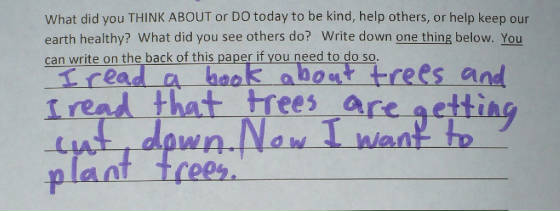 What did you THINK ABOUT or DO today to be kind, help others, or help keep our
earth healthy? What did you see others do? Write down one thing below. You
can write on the back of this paper if you need to do so.
I read a book about trees and
I read that trees are getting
cut down. Now I want to
plant trees.